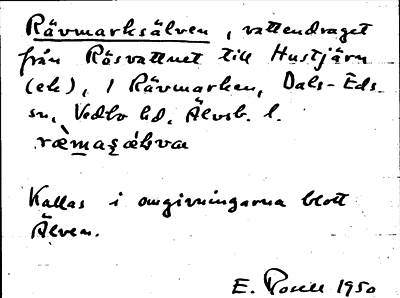 Rävmarksälven, vattendraget
från Råsvattnet till Hustjärn
(ek), i Rävmarken, Dals-Eds
sn, Vedbo hd, Älvsb. l.
Kallas i omgivningarna blott
Älven.
E. 1950